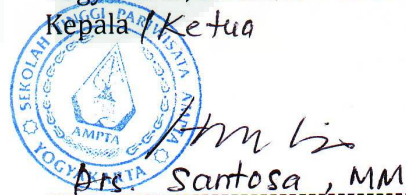 Kepala / Ketua
SEKOLAH TINGGI PARIWISATA AMPTA
AMPTA
YOGYAKARTA
Drs. Santosa, MM